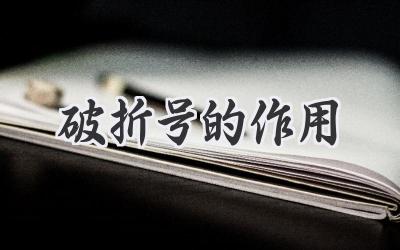 破折号的作用